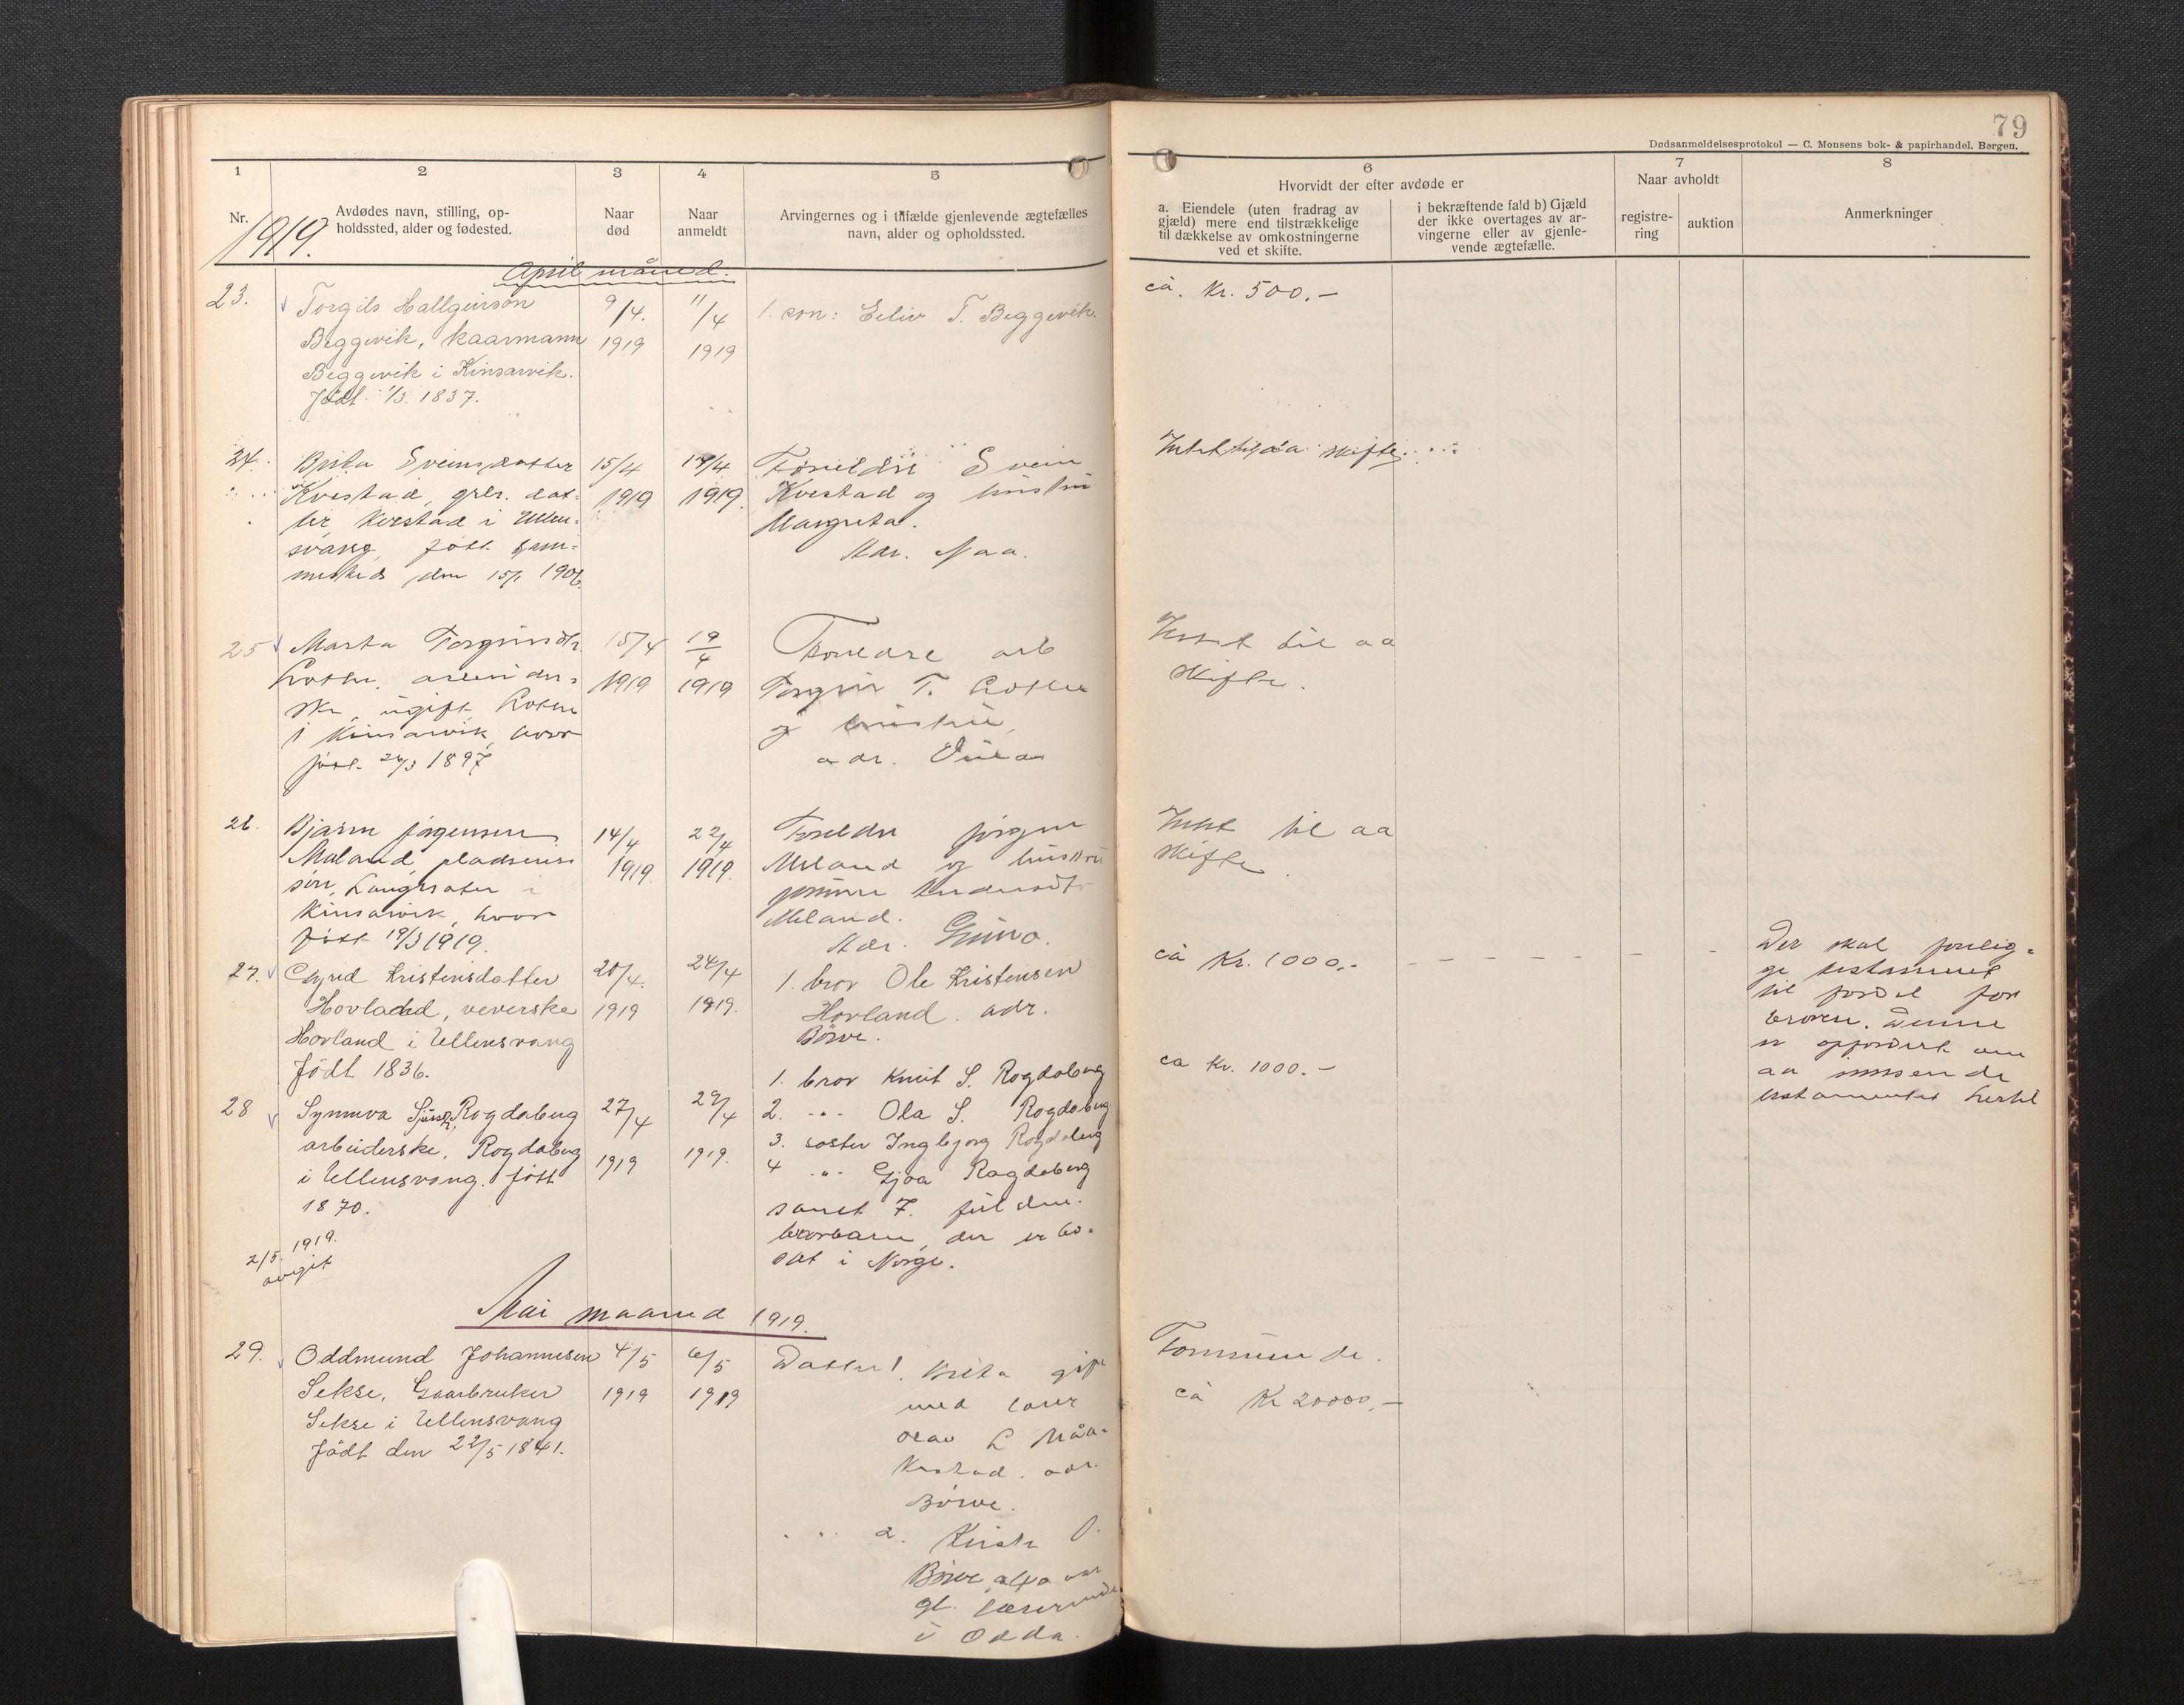 79
Dødsanmeldelsesprotokol — C. Monsens bok- & papirhandel, Bergen.
1 2 3 4 5 6 7 8
Nr.
1919.
Avdødes navn, stilling, op-
holdssted, alder og fødested.
Naar
død
Naar
anmeldt
Arvingernes og i tilfælde gjenlevende ægtefælles
navn, alder og opholdssted.
Hvorvidt der efter avdøde er
a. Eiendele (uten fradrag av
gjæld) mere end tilstrækkelige
til dækkelse av omkostningerne
ved et skifte.
i bekræftende fald b) Gjæld
der ikke overtages av ar-
vingerne eller av gjenle-
vende ægtefælle.
Naar avholdt
registre-
ring
auktion
Anmerkninger
April måned.
23.
Torgils Hallgeirson
Beggevik, kaarmann
Beggevik i Kinsarvik.
Født 1/3. 1837.
9/4.
1919
11/4
1919
1. søn: Eeliv T. Beggevik.
ca. Kr. 500.-
24.
Brita Sveinsdatter
Kvestad, grbr. dat-
ter Kvestad i Ullen-
svang, født sam-
mesteds den 15/1 1906
15/4
1919
17/4
1919.
Foreldre Svein
Kvestad og hustru
Margreta.
Adr. Naa.
Intet til aa skifte.
25
Marta Torgeirsdtr.
Lothe, arbeider-
ske, ugift Lothe
i Kinsarvik, hvor
født 26/3 1897
15/4
1919
19/4
1919
Foreldre arb
Torgeir T. Lothe
og hustru,
adr.
Intet til aa
skifte.
26.
Bjarne Jørgensen
Meland, pladsmans
søn, Langesater i
Kinsarvik, hvor
født 19/3 1919.
14/4
1919.
22/4
1919.
Foreldre Jørgen
Meland og hustru
Andersdt
Meland.
Adr. Grimo.
Intet til aa
skifte.
27.
Kristensdatter
Hovland, veverske
Hovland i Ullensvang
Født 1836.
20/4.
1919
24/4
1919.
1. bror Ole Kristensen
Hovland. adr.
Børve.
ca Kr. 1000.-
Der skal forelig-
ge testament
til fordel for
broren. Denne
er opfordret om
aa innsende
testamentet hertil
28
Synneva Rogdaberg
arbeiderske, Rogdaberg
i Ullensvang. født
1870.
27/4
1919
29/4
1919.
1. bror Knut S. Rogdaberg
2. -"- Ola S. Rogdaberg
3. søster Ingbjørg Rogdaberg
4 -"- Gjøa Rogdaberg
samt 7. fuldm.
brorbarn, der er bo-
sat i Norge.
ca Kr. 1000.-
2/5. 1919.
avgit
Mai maaned 1919.
29.
Oddmund Johannesen
Sekse, Gaarbruker
Sekse i Ullensvang
Født den 22/5 1841.
4/5
1919
6/5
1919
Datter 1. Brita gift
med lærer
Olav L Måa-
kestad. adr.
Børve.
2. Kirste O.
Børve,
gt. lærerinde
i Odda.
Formuende.
ca Kr 20000.-